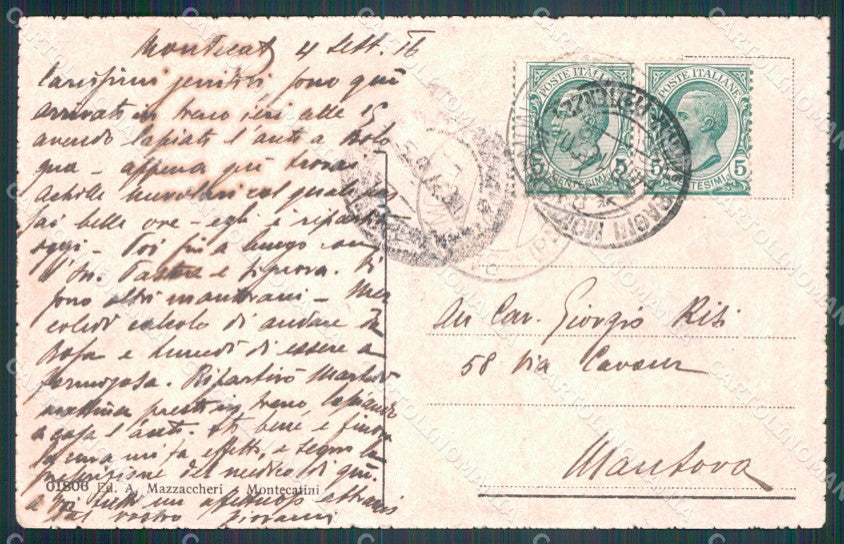 4 Sett. 16
Carissimi genitori, sono qui
arrivati in treno ieri alle 15
avendo lasciata l'auto a Bolo
gna - appena giù trovai
Achille
sai belle ore - egli è ripartito
oggi - Poi fui a lungo con
e signora. Vi
sono altri mantovani - Mer
coledì calcolo di andare
e lunedì di essere a
Ripartirò Martedì
mattina presto in treno, lasciando
a casa l'auto. Sto bene e finora
la cura mi fa effetto, e seguo la
prescrizione del medico di qui.
A voi tutti un affettuoso abbraccio
dal vostro Giovanni
01806 Ed. A. Mazzaccheri - Montecatini
POSTE ITALIANE
5 CENTESIMI 5
POSTE ITALIANE
5 CENTESIMI 5
BAGNI MONTECATINI
Al Cav. Giorgio
58 Via Cavour
Mantova
CARTOLINOMANIA